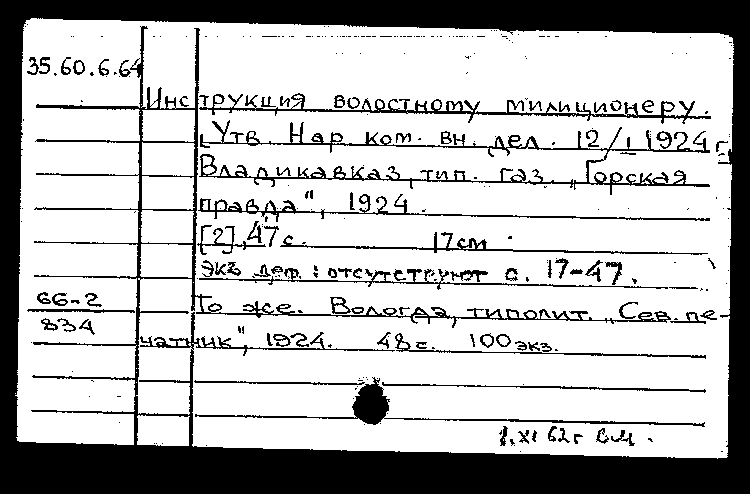 35.60.6.64
Инструкция волостному милиционеру.
[Утв Нар. ком. вн. дел. 12/I 1924 г.]
Владикавказ, тип. газ. „Горская
правда", 1924.
[2], 47 с. 17 см.
Экз деф.: отсутствуют с. 17-47.
66-2
834
То же. Вологда, типолит. „Сев. пе-
чатник", 1924. 48 с. 100 экз.
1.XI 62 г В.М.